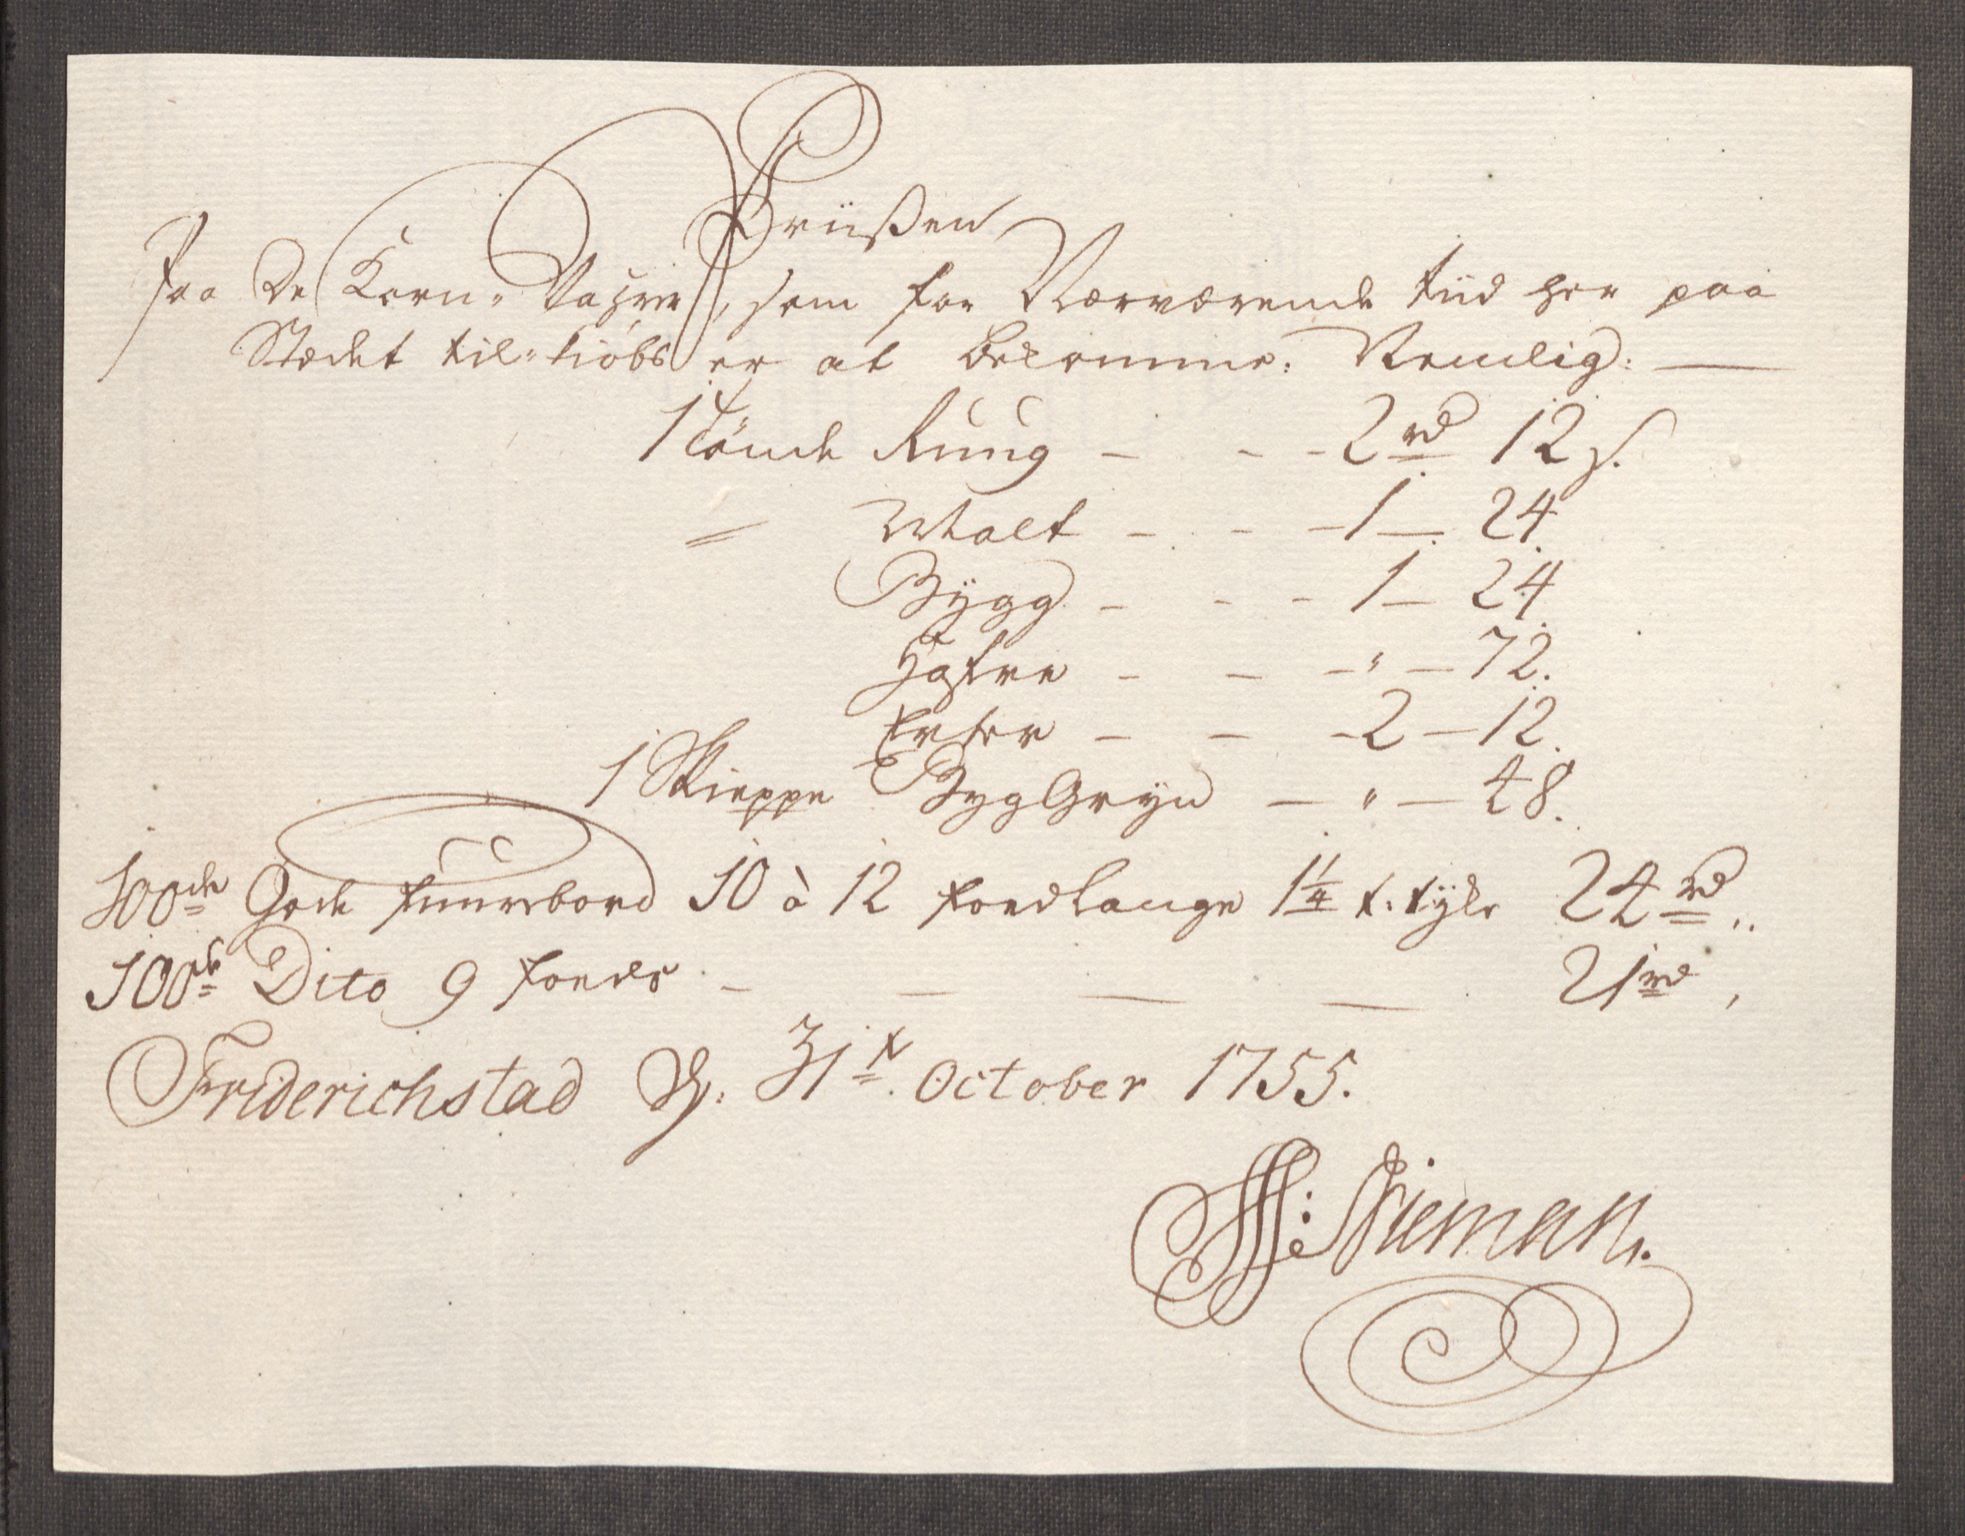 Priißen
Paa De Korn-Vahrer, som for Nærværende tiid her paa
Stædet til-kiøbs er at bekomme: Nemlig:
1 Tønde Rúúg - - - 2 rd 12 s.
" Malt - - - 1 - 24
Bÿgg - - - 1 - 24
Hafre - - - " - 72.
Erter - - - 2 - 12.
1 Skieppe Byg Grÿn - " - 48.
100de Gode fuurebord 10 à 12 foed Lange 1 1/4 t. tÿke 24 rd ..
100de Dito 9 foeds - - - - 21 rd ,
Friderichstad d. 31t October 1755.
Nieman.